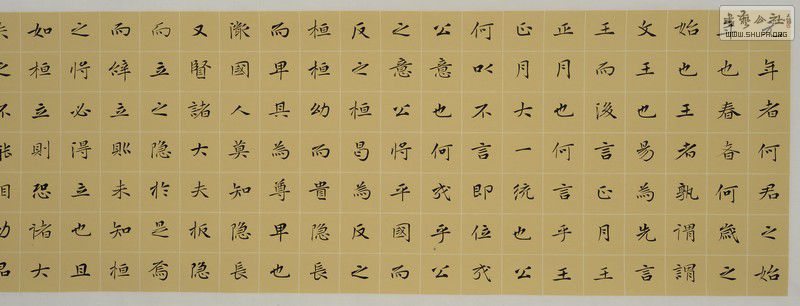 年者何君之始
也春者何歲之
始也王者孰謂謂
文王也曷為先言
王而後言正月王
正月也何言乎王
正月大一統也公
何以不言即位成
公意也何成乎公
之意公將平國而
反之桓曷為反之
桓桓幼而貴隱長
而卑其為尊卑也
微國人莫知隱長
又賢諸大夫扳隱
而立之隱於是焉
而辭立則未知桓
之將必得立也且
如桓立則恐諸大
夫之不能相幼君
书艺公社
WWW.SHUFA.ORG